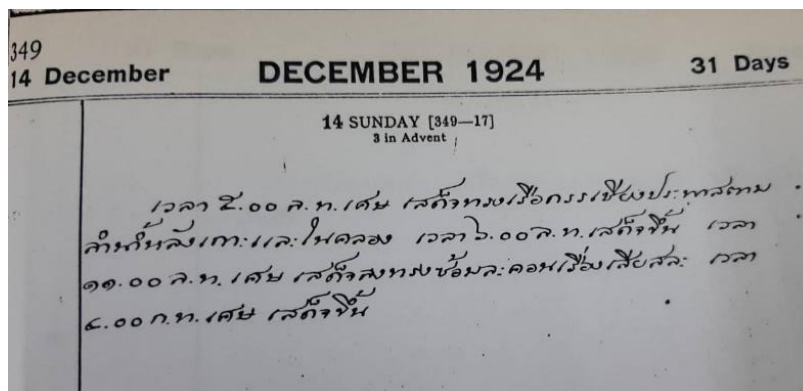 349
14 December DECEMBER 1924 31 Days
14 SUNDAY [349—17]
3 in Advent
เวลา ๕.๐๐ ล.ท. เศษ เสด็จทรงเรือกรรเชียงประพาสตาม
ลำน้ำหลังเกาะและในคลอง เวลา ๖.๐๐ ล.ท. เสด็จขึ้น เวลา
๑๑.๐๐ ล.ท. เศษ เสด็จลงทรงซ้อมละคอนเรื่องเสียสละ เวลา
๔.๐๐ ก.ท. เศษ เสด็จขึ้น